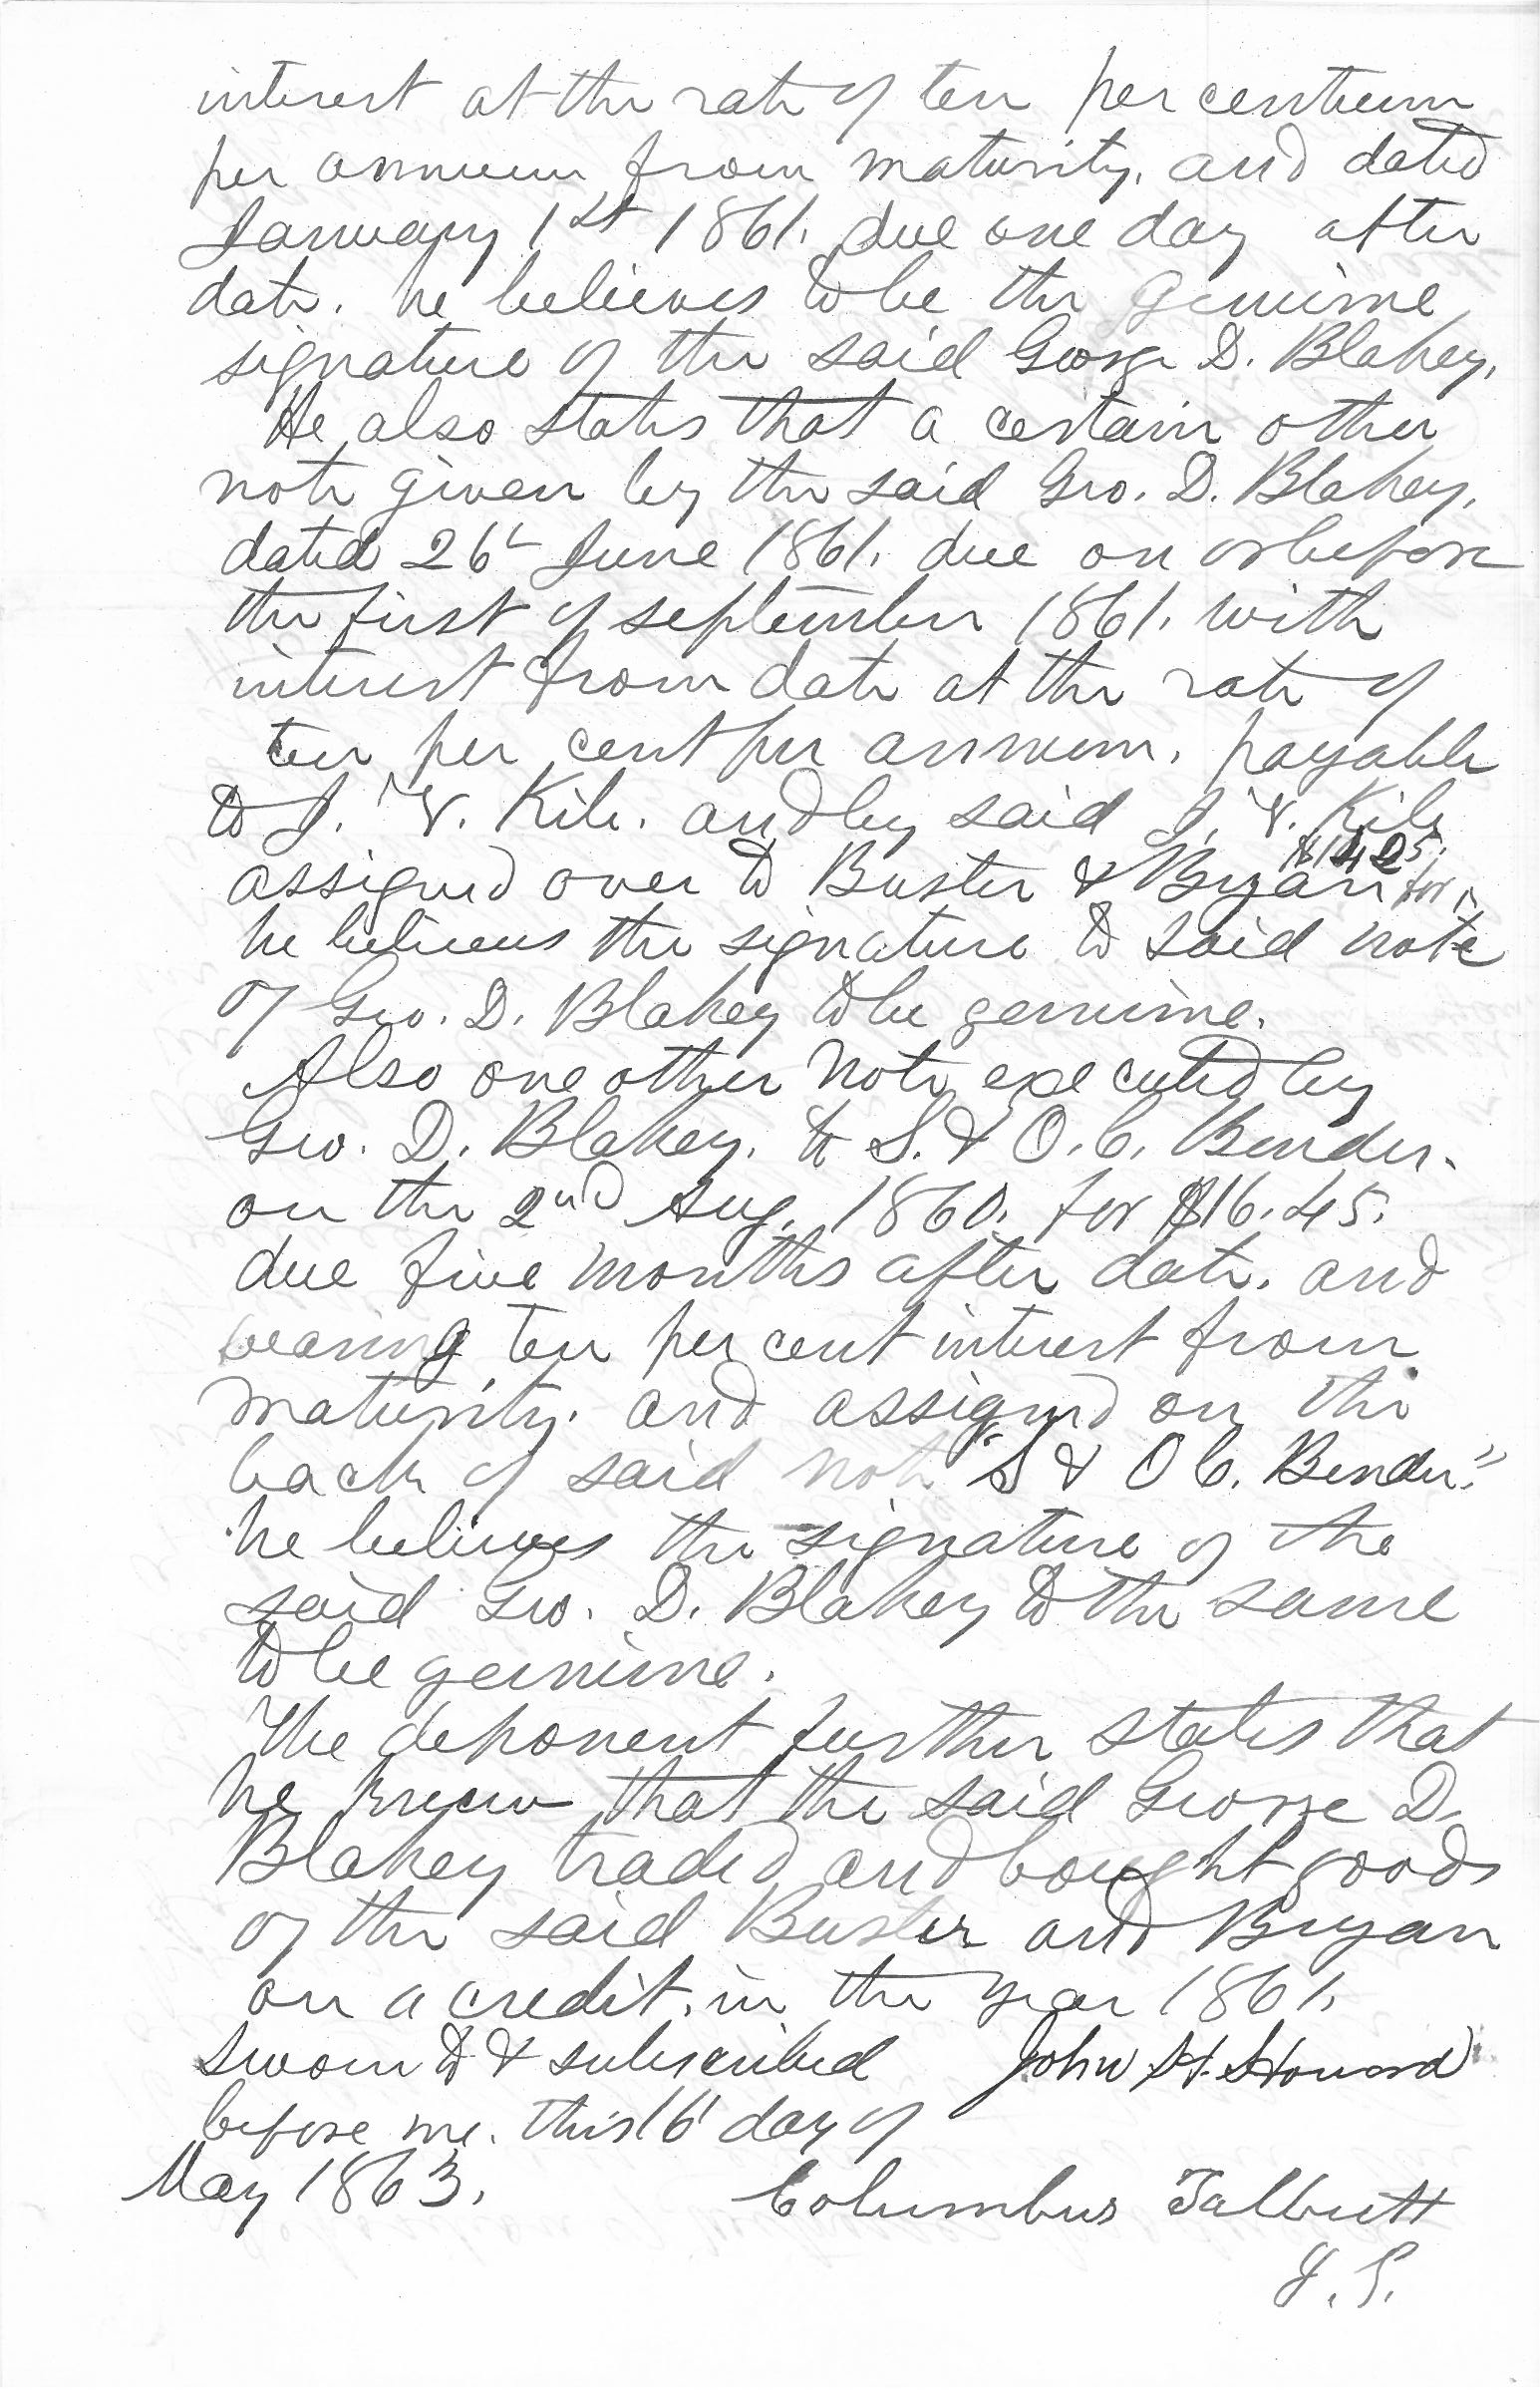 interest at the rate of ten per centum
per annum from maturity, and dated
January 1st 1861. due one day after
date. he believes to be the genuine
signature of the said George D. Blakey,
He also states that a certain other
note given by the said Geo. D. Blakey,
dated 26t June 1861. due on or before
the first of september 1861. with
interest from date at the rate of
ten per cent per annum. payable
to J. V. Kile. and by said J. V. Kile
$1425.
assigned over to Buster & Bryan for
he believes the signature to said note
of Geo. D. Blakey to be genuine.
Also one other note executed by
Geo. D. Blakey. to S. & O. C. Bender.
on the 2nd Aug. 1860. for $16.45.
due five months after date. and
bearing ten per cent interest from
maturity. and assigned on the
back of said note "S & O C. Bender."
he believes the signature of the
said Geo. D. Blakey to the same
to be genuine.
The deponent further states that
he knew that the said George D.
Blakey traded and bought goods
of the said Buster and Bryan
on a credit. in the year 1861.
sworn to & subscribed John H. Howard
before me. this 16 day of
May 1863. Columbus Talbutt
J. P.